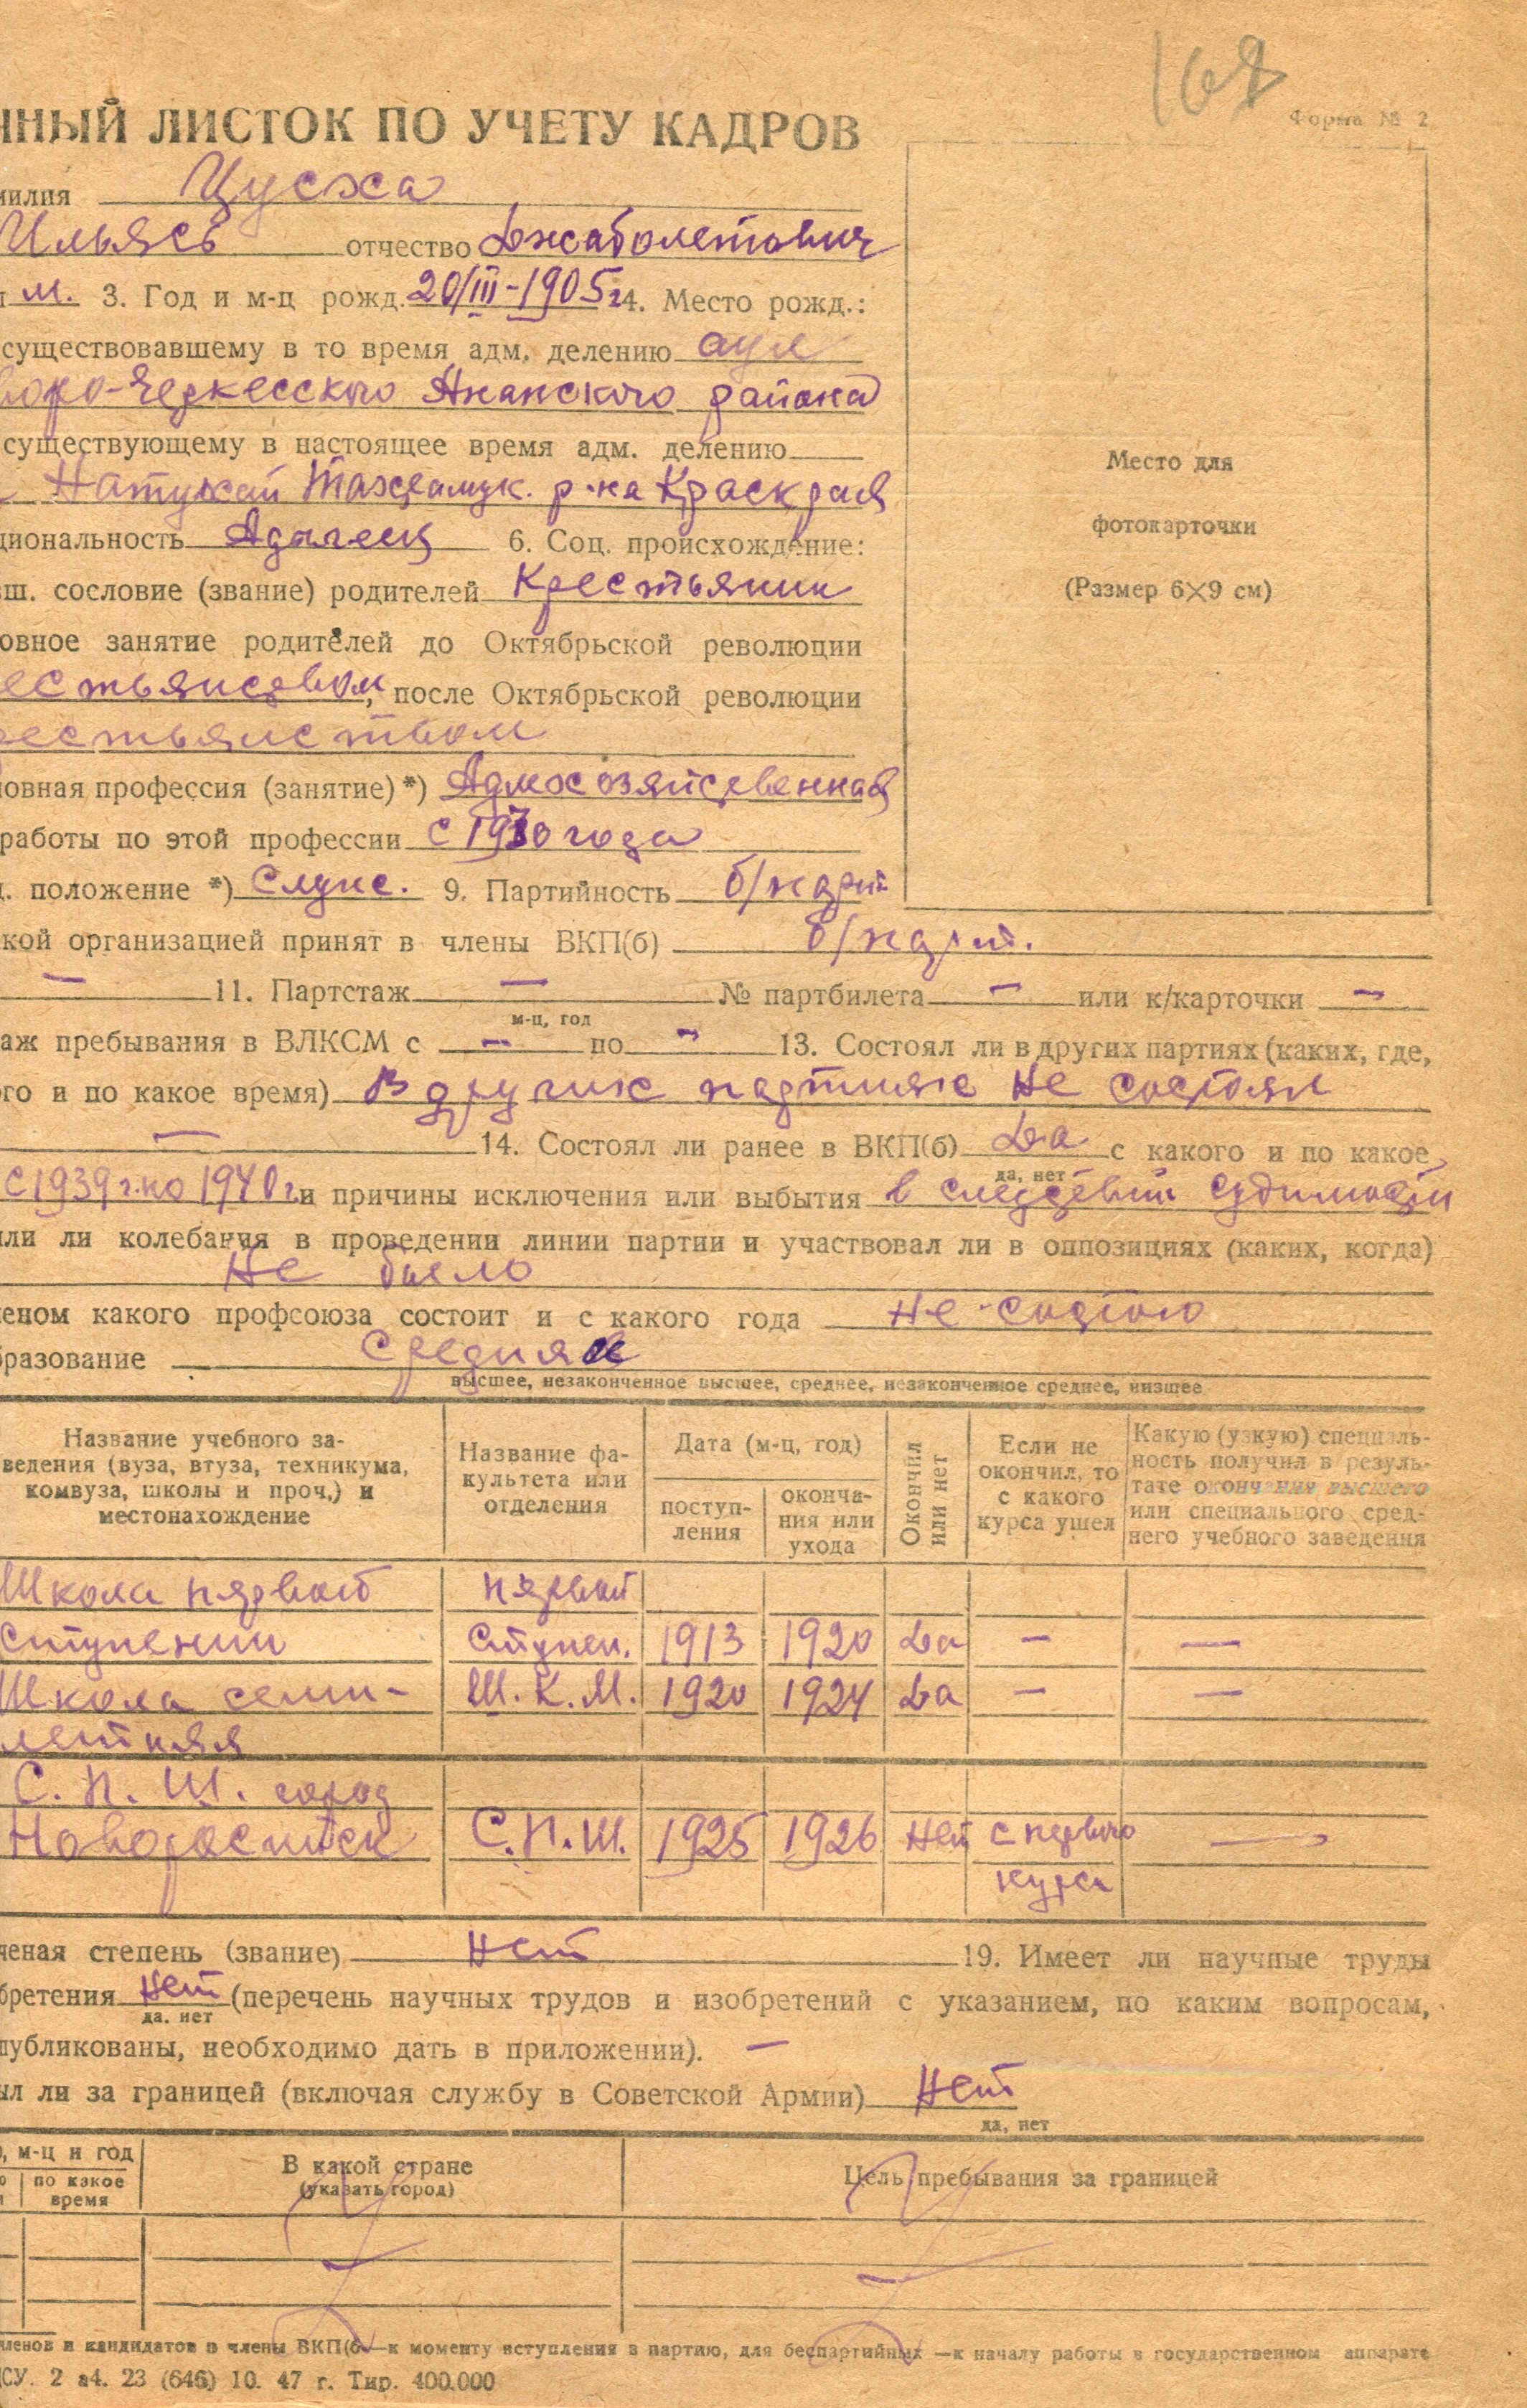 168
Форма № 2
ННЫЙ ЛИСТОК ПО УЧЕТУ КАДРОВ
милия Цусха
Ильясь отчество Джаболетович
м. 3. Год и м-ц рожд. 20/III-1905 г. 4. Место рожд.:
существовавшему в то время адм. делению аул
Черкесского Анапского района
существующему в настоящее время адм. делению
Натухай Тахтамук. р-на Краскрая
циональность Адыгеец 6. Соц. происхождение:
вш. сословие (звание) родителей Крестьянин
овное занятие родителей до Октябрьской революции
естьянством, после Октябрьской революции
рестьянством
ловная профессия (занятие) *) Админхозяйственная
работы по этой профессии с 1930 года
ц. положение *) Служ. 9. Партийность б/парт.
ской организацией принят в члены ВКП(б) б/парт.
— 11. Партстаж — № партбилета — или к/карточки —
м-ц, год
аж пребывания в ВЛКСМ с — по — 13. Состоял ли в других партиях (каких, где,
го и по какое время) В других партиях не состоял
— 14. Состоял ли ранее в ВКП(б) Да с какого и по какое
да, нет
с 1939 г. по 1940 г. и причины исключения или выбытия в следствии судимости
ли ли колебания в проведении линии партии и участвовал ли в оппозициях (каких, когда)
Не было
еном какого профсоюза состоит и с какого года не состою
бразование Средняя
высшее, незаконченное высшее, среднее, незаконченное среднее, низшее
Название учебного за-
ведения (вуза, втуза, техникума,
комвуза, школы и проч.) и
местонахождение
Название фа-
культета или
отделения
Дата (м-ц, год)
поступ-
ления
оконча-
ния или
ухода
Окончил
или нет
Если не
окончил, то
с какого
курса ушел
Какую (узкую) специаль-
ность получил в резуль-
тате окончания высшего
или специального сред-
него учебного заведения
Школа пярвой пярвой
ступении ступен. 1913 1920 Да — —
Школа семи- Ш. К. М. 1920 1924 Да — —
летняя
С. П. Ш. город
Новоросийск С. П. Ш. 1925 1926 Нет с первого —
курса
ченая степень (звание) Нет 19. Имеет ли научные труды
бретения Нет (перечень научных трудов и изобретений с указанием, по каким вопросам,
да, нет
публикованы, необходимо дать в приложении). —
ыл ли за границей (включая службу в Советской Армии) Нет
да, нет
о, м-ц и год
по какое
время
В какой стране
(указать город)
Цель пребывания за границей
членов и кандидатов в члены ВКП(б)—к моменту вступления в партию, для беспартийных —к началу работы в государственном аппарате
СУ. 2 а4. 23 (646) 10. 47 г. Тир. 400.000